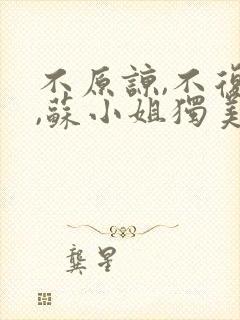 不原諒,不復
,蘇小姐獨美
龔星